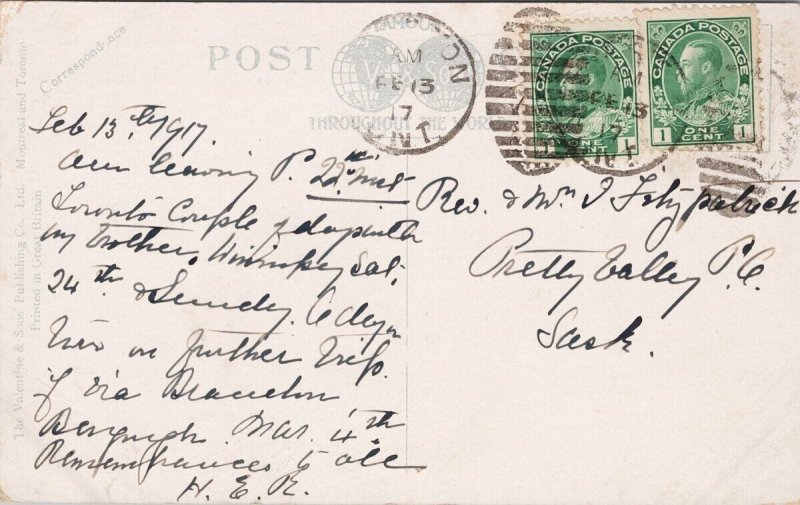 POST
Correspondence
FAMOUS
V. & Sons
THROUGHOUT THE WORLD
The Valentine & Sons Publishing Co., Ltd. Montreal and Toronto
Printed in Great Britain
AM
FE 13
17
ONT
CANADA POSTAGE
1 ONE CENT 1
CANADA POSTAGE
1 ONE CENT 1
Feb 13th 1917.
Am leaving P. 22nd inst
Toronto Couple of days with
my brother, Winnipeg Sat,
24th & Sunday.
on further
via Brandon
Mar. 4th
Remembrances to all
H. E. R.
Rev. & Mrs J Fitzpatrick
Pretty Valley P.O.
Sask.